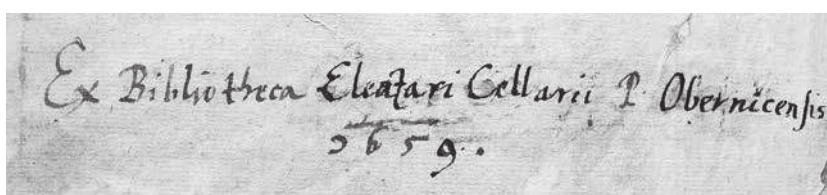 Ex Bibliotheca Eleazari Cellarii P Obernicensis
1659.